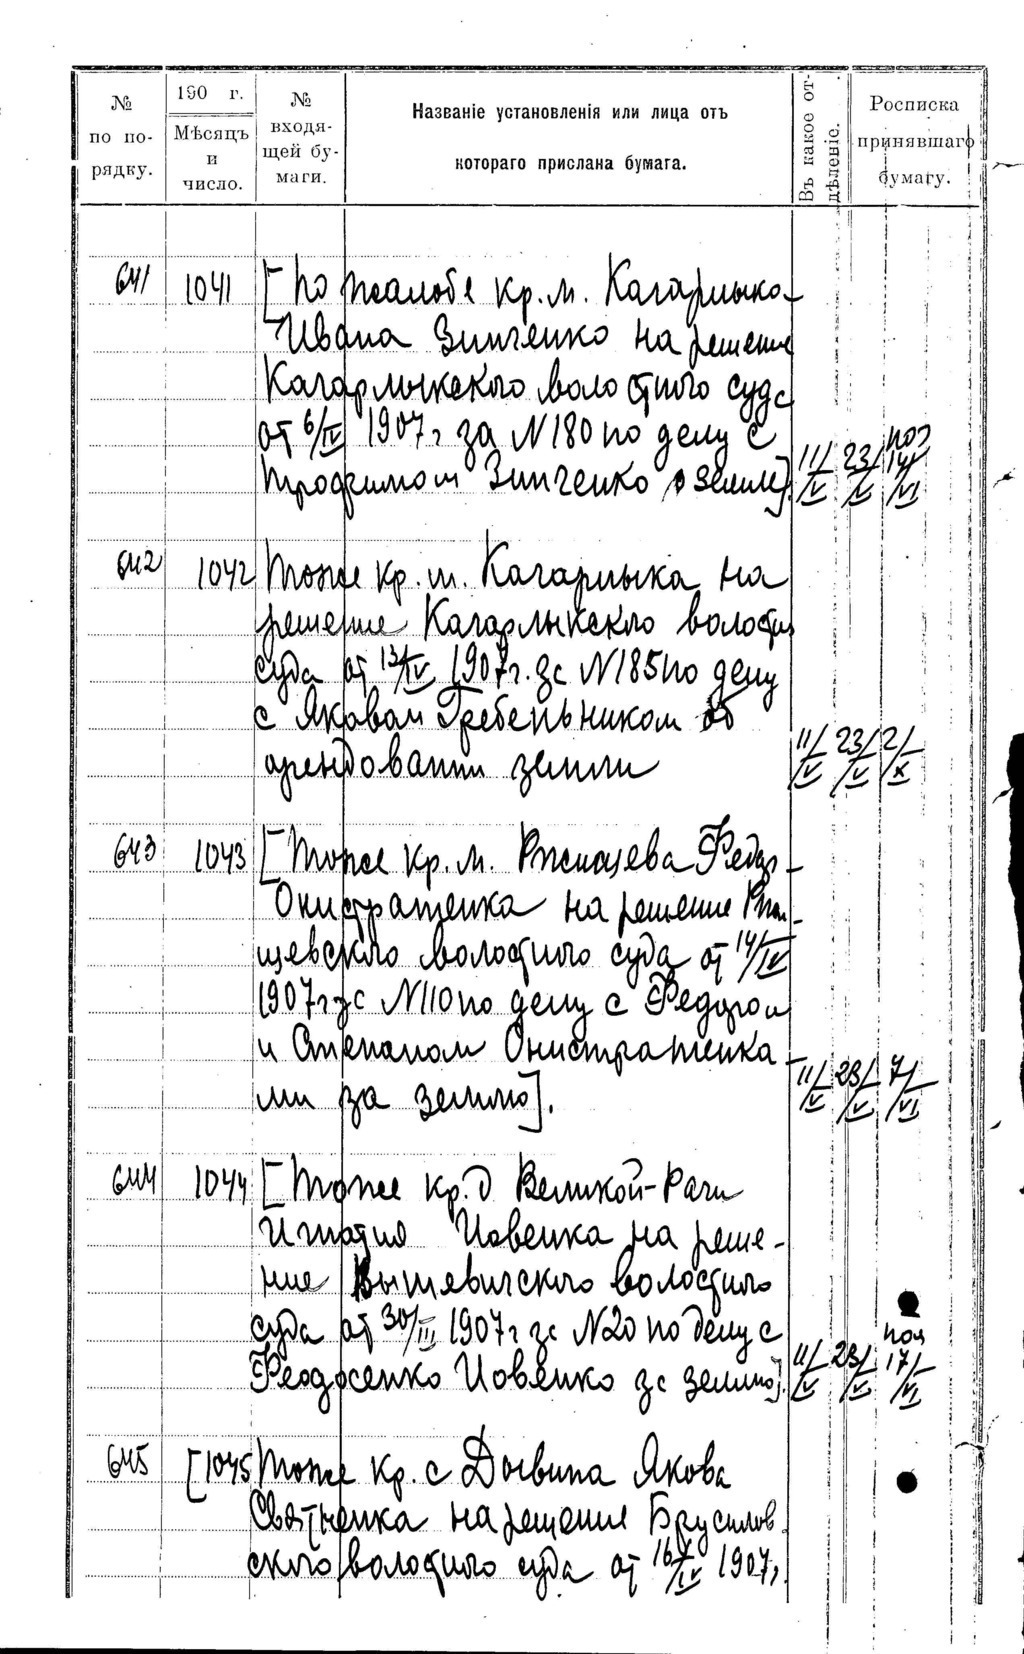 № по по-рядку.
190 г. Мѣсяцъ и число.
№ входя-щей бу-маги.
Названіе установленія или лица отъ
котораго прислана бумага.
Въ какое от-дѣленіе.
Росписка принявшаго бумагу.
641 1041 [По жалобе кр. м. Кагарлыко-
Ивана Зинченко на решение
Кагарлыкского волостного суда
от 6/IV 1907 г за N 180 по делу с
Трофимом Зинченко о земле]. 11/V 23/V 14/VI
642 1042 Тоже кр. м. Кагарлыка на
решение Кагарлыкского волостн
суда от 13/IV 1907 г. за N 185 по делу
с Яковом Гребенников об
арендовании земли 11/V 23/V 2/X
643 1043 [Тоже кр. м. Ржищева Федор-
Онистратенка на решение Ржи-
щевского волостного суда от 14/IV
1907 г за N 110 по делу с Федором
и Степаном Онистратенка-
ми за землю]. 11/V 23/V 7/VI
644 1044 [Тоже кр. д Великой-Рачи
Игнатия Иовенка на реше-
ние Вышевичского волостного
суда от 30/III 1907 г за N 20 по делу с
Феодосенко Иовенко за землю]. 11/V 23/V 17/VI
645 [1045 Тоже кр. с Дывина Якова
Святненка на решение Брусилов
ского волостного суда от 16/IV 1907 г.